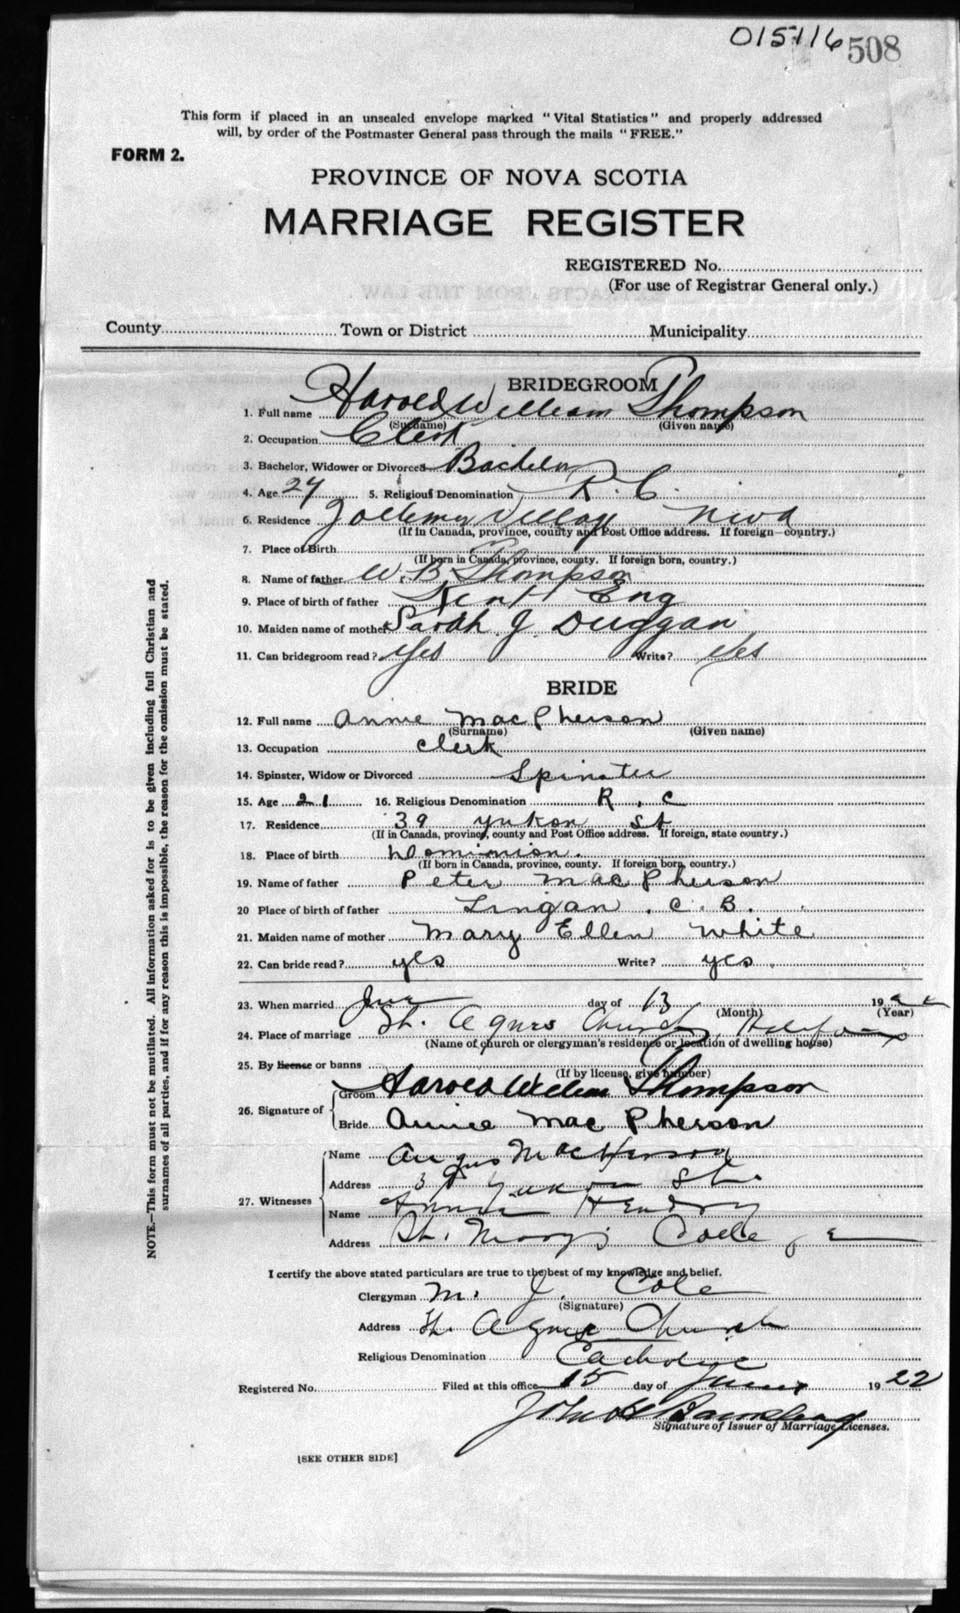 015116 508
This form if placed in an unsealed envelope marked "Vital Statistics" and properly addressed
will, by order of the Postmaster General pass through the mails "FREE."
FORM 2.
PROVINCE OF NOVA SCOTIA
MARRIAGE REGISTER
REGISTERED No.
(For use of Registrar General only.)
County Town or District Municipality
BRIDEGROOM
1. Full name Harold William Thompson
(Surname) (Given name)
2. Occupation Clerk
3. Bachelor, Widower or Divorced Bachelor
4. Age 27 5. Religious Denomination R. C.
6. Residence Village
(If in Canada, province, county and Post Office address. If foreign—country.)
7. Place of Birth
(If born in Canada, province, county. If foreign born, country.)
8. Name of father W. B. Thompson
9. Place of birth of father Kent Eng
10. Maiden name of mother Sarah J. Duggan
11. Can bridegroom read? Yes Write? Yes
BRIDE
12. Full name Annie MacPherson
(Surname) (Given name)
13. Occupation Clerk
14. Spinster, Widow or Divorced Spinster
15. Age 21 16. Religious Denomination R. C
17. Residence 39 Yukon St
(If in Canada, province, county and Post Office address. If foreign, state country.)
18. Place of birth Dominion.
(If born in Canada, province, county. If foreign born, country.)
19. Name of father Peter MacPherson
20 Place of birth of father Lingan. C. B.
21. Maiden name of mother Mary Ellen White
22. Can bride read? yes Write? yes.
23. When married June day of 13 19 22
(Month) (Year)
24. Place of marriage St. Agnes Church, Halifax
(Name of church or clergyman's residence or location of dwelling house)
25. By licence or banns
(If by license, give number)
26. Signature of Groom Harold William Thompson
Bride Annie MacPherson
27. Witnesses
Name Angus MacPherson
Address 39 Yukon St.
Name Hendry
Address St. Mary's College
I certify the above stated particulars are true to the best of my knowledge and belief.
Clergyman M. J. Cole
(Signature)
Address St. Agnes Church
Religious Denomination Catholic
Registered No. Filed at this office 15 day of June 19 22
John
Signature of Issuer of Marriage Licenses.
[SEE OTHER SIDE]
NOTE.—This form must not be mutilated. All information asked for is to be given including full Christian and
surnames of all parties, and if for any reason this is impossible, the reason for the omission must be stated.